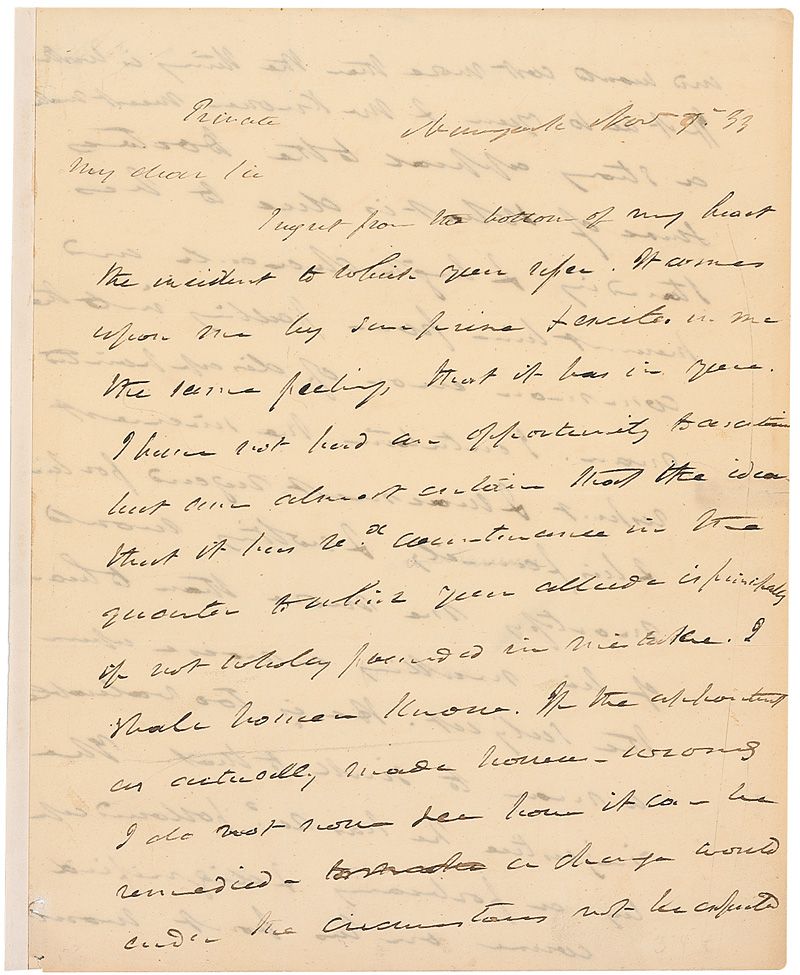 Private
Newyork Nov 9. 33
My dear Sir
I regret from the bottom of my heart
the incident to which you refer. It comes
upon me by surprise & excites in me
the same feelings that it has in you.
I have not had an opportunity to ascertain
but am almost certain that the idea
that it has rec.d countenance in the
quarter to which you allude is principally
if not wholey founded in mistake. I
shall however know. If the appointment
is actually made however wrong
I do not now see how it can be
remedied - a change would
under the circumstances not be expected